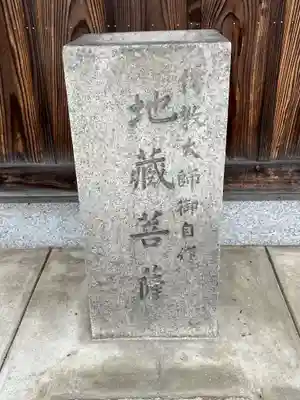 傳教大師御自作
地藏菩薩